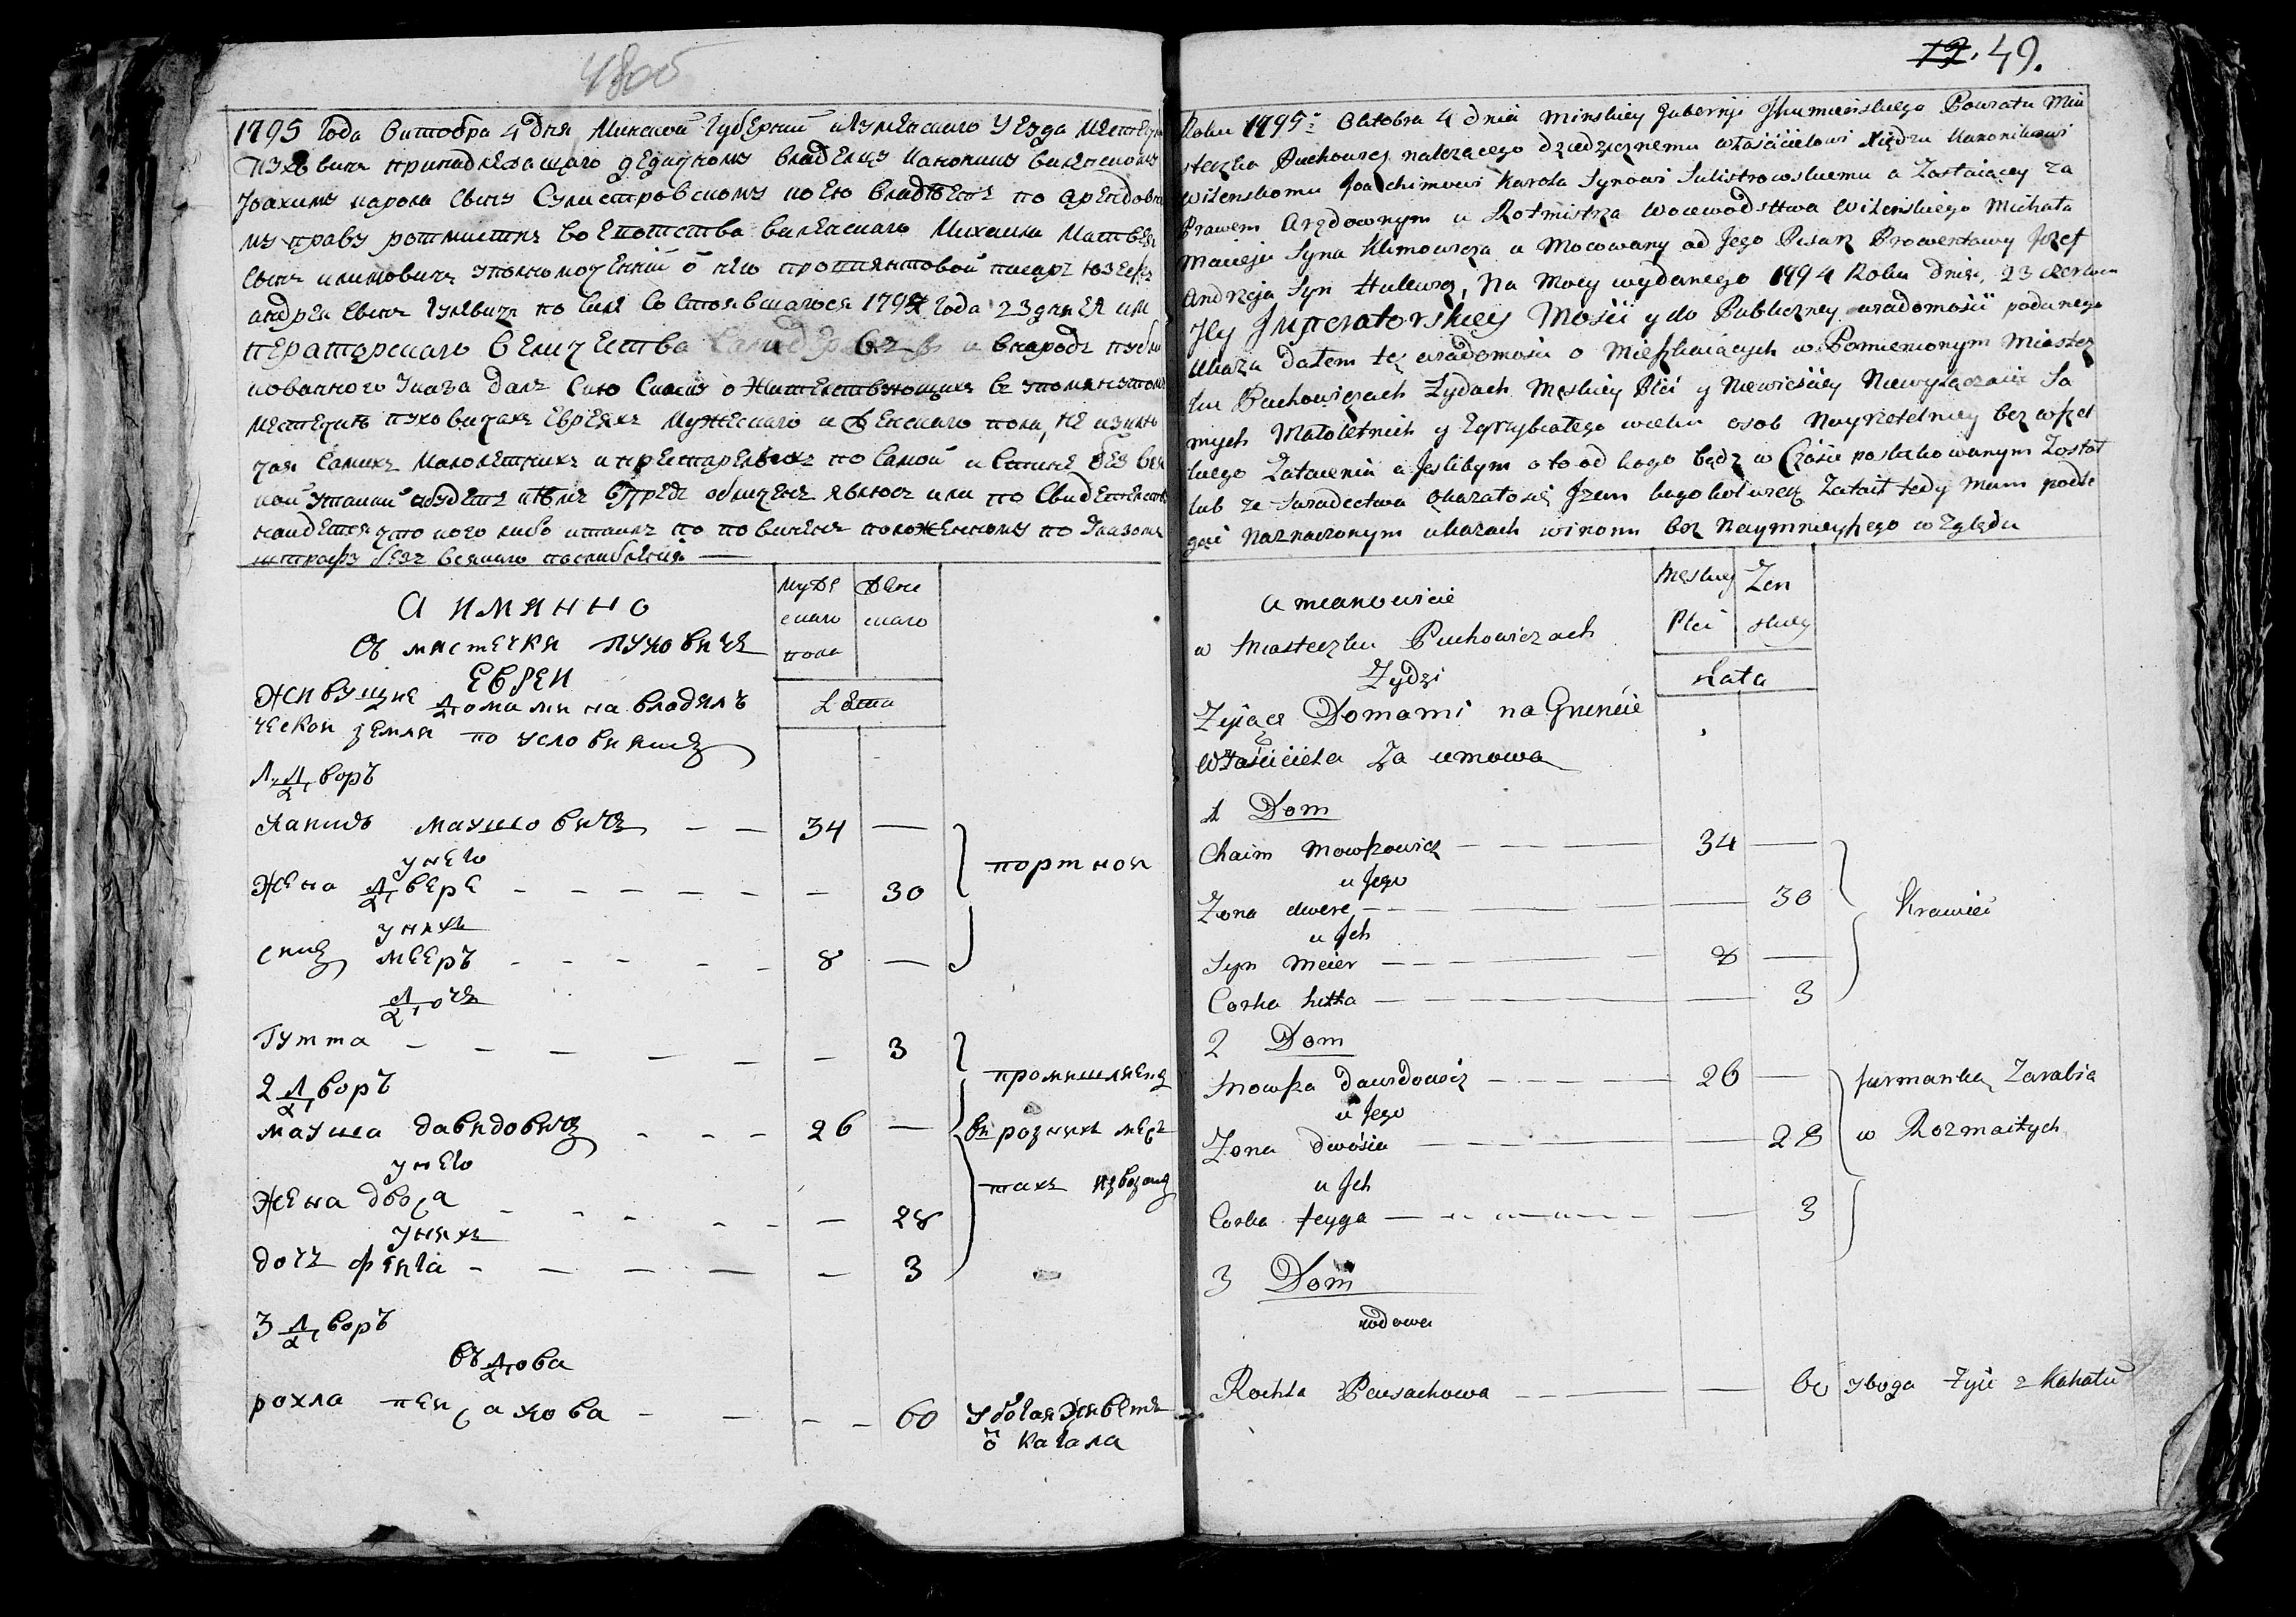 48об
1795 года Октобра 4 дня Минской Губернии Игуменского Уезда Местечка
Пуховичъ принадлежащаго дедичному владелцу канонику виленскому
Иоахиму карола сыну Сулистровскому по его владѣетъ по арендовно
му праву ротмистръ воетотства виленскаго Михаила Матвея
сынъ климовичъ уполномоченній о него провиянтовой писарь юзефъ
андрея сынъ Гулевичъ по силе состоявшагося 1794 года 23 дня Ея им
ператорскаго величества и внародъ публи
кованного Указа далъ сию сказку о Жительствующихъ въ упомянутомъ
местечкѣ пуховичахъ Евреяхъ Мужескаго и Женскаго пола, не изклю
чая самихъ малолетнихъ и престарелыхъ по самой истине без вся
кой утайки
наидется что кого либо утаилъ то повиненъ положенному по Указомъ
штрафу безъ всякаго послабленія
А имянно
съ мистечки пуховичъ
Евреи
Живущие домами на владелъ
ческой земли по условиямъ
муже
скаго
пола
Жен
скаго
Лета
1 дворъ
хаимъ маушовичъ — — 34 —
у него
Жена двере — — — — — — 30
портной
у нихъ
синъ мееръ — — — — — 8 —
дочъ
Гутта — — — — — — 3
2 дворъ
мауша давидовичъ — — — 26 —
промишляенъ
въ розныхъ мес
тахъ извозамъ
у него
Жена двоса — — — — — — 28
у нихъ
дочъ фейга — — — — — 3
3 дворъ
въдова
рохла пейсахова — — — — 60 убогая живетъ
о кагала
12. 49.
Roku 1795: Oktobra 4 dnia Minskiey Gubernji Jhumeńskiego Powiatu Mia
steczka Puchowicz należącego dziedzicznemu właścicielowi Xiędzu Kanonikowi
Wileńskomu Joachimowi Karola Synowi Sulistrowskiemu a Zostaiącey za
Prawem Arędownym u Rotmistrza Woiewodsttwa Wileńskiego Michała
Macieja Syna Klimowicza u Mocowany od Jego Pisarz Prowentowy Jozef
Andrzeja Syn Hulewicz, Na Mocy wydanego 1794 Roku Dnia 23 czerwca
Jey Jmperatorskiey Mości y do Publiczney wiadomości podanego
Ukazu dałem tę wiadomość o Mieszkaiących w Pomienionym Miastecz
ku Puchowiczach Żydach Męskiey Płci y Niewieściey Niewyłączaiąc Sa
mych Małoletnich y Zgrzybiałego wieku osob Nayrzetelniey bez wszel
kiego Zataienia a Jeslibym o to od kogo bądz w Czasie poszlakowanym Został
lub ze Swiadectwa Okazałosię Jżem kogokolwiek Zataił tedy mam podle
gać Naznaczonym ukazach winom bez Naymnieyszego względu
a mianowicie
w Miasteczku Puchowiczach
Żydzi
Żyjące Domami na Gruncie
Właściciela Za umową
Męskiey
Płci
Żen
skiey
Lata
1 Dom
Chaim Mowszowicz — — — — 34 —
u Jego
Żona dwere — — — — — 30
Krawiec
u Jch
Syn Meier — — — — — 8 —
Corka hutta — — — — — 3
2 Dom
Mowsza Dawidowicz — — — — 26 —
furmanką Zarabia
u Jego
Żona Dwósia — — — — 28
w Rozmaitych
u Jch
Corka feyga — — — — — 3
3 Dom
wdowa
Rochla Peisachowa — — — — 60 uboga Żyie z Kahału